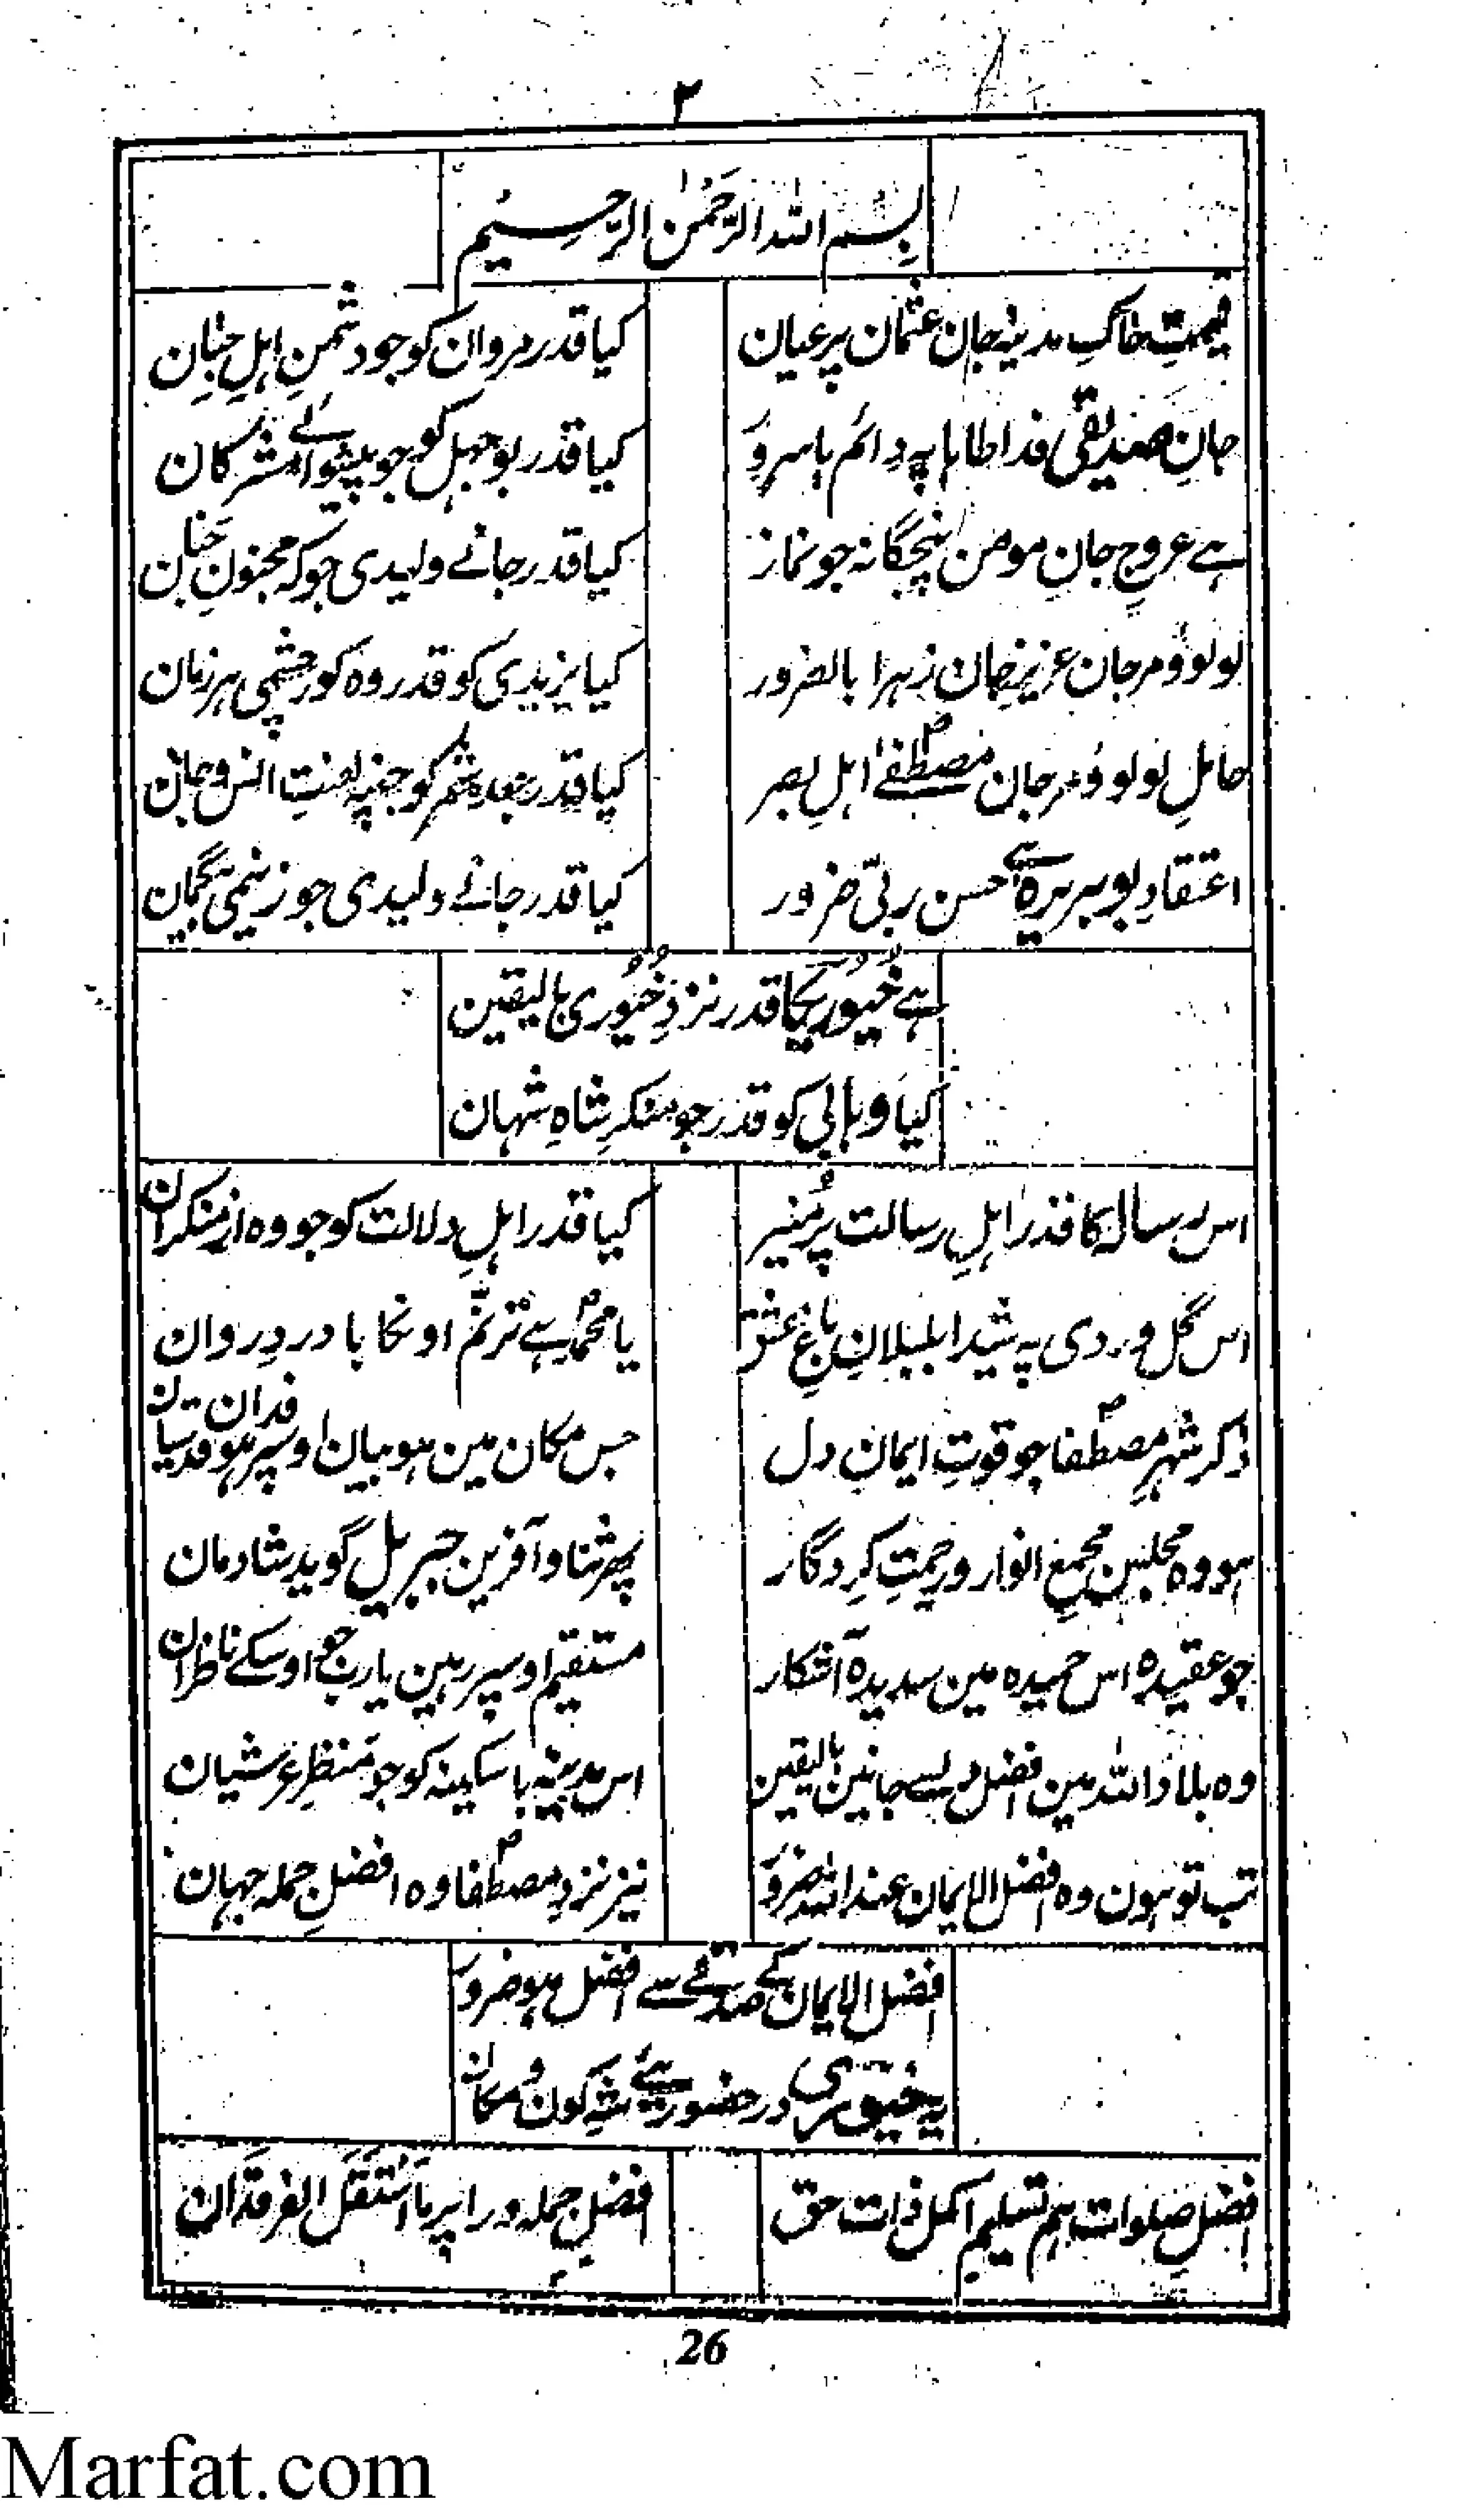 ۲
بسم اللہ الرحمٰن الرحیم
قیمتِ خاکِ مدینہ جانِ عثمان پر عیان
کیا قدر مروان کو جو دشمنِ اہلِ جنان
جانِ صدیقی فدا طابا پہ دائم باسرور
کیا قدر بوجہل کو جو پیشوائے مشرکان
ہے عروجِ جانِ مومن پنچگانہ جو نماز
کیا قدر جانے ولیدی جو کہ مجنونِ
لولوؤ مرجان عزیزِ جان زہرا بالضرور
کیا یزیدی کو قدر وہ کور چشمی ہر زمان
حاملِ لولوؤ مرجان مصطفےٰؐ اہلِ بصر
کیا قدر شمر کو جنپہ لعنتِ انس و جان
اعتقادِ بوہریرہ سے حسن ربّی ضرور
کیا قدر جانے ولیدی جو زنیمی بیگمان
ہے کا قدر نزدِ بالیقین
کیا وہابی کو قدر جو منکرِ شاہِ شہان
اس رسالہ کا قدر اہلِ رسالت پرمنیر
کیا قدر اہلِ دلالت کو جو وہ از منکران
اس گلِ وردی پہ شیدا بلبلانِ باغِ عشق
یا محمدؐ ہے ترنّم اونکا با دردِ روان
ذکر شہرِ مصطفاؐ جو قوتِ ایمان دل
جس مکان مین ہو بیان اوسپر ہو فدا قدسیان
ہو وہ مجلس مجمعِ انوار و رحمتِ کردگار
پھر ثنا و آفرین جبریل گوید شادمان
جو عقیدہ اس حمیدہ مین سدیدہ آشکار
مستقیم اوسپر رہین یا رب جو اوسکے ناظران
وہ بلاد اللہ مین افضل دلسے جانین بالیقین
اس مدینہ با سکینہ کو جو منظرِ عرشیان
تب تو ہون وہ افضل الایمان عند اللہ ضرور
نیز نزدِ مصطفاؐ وہ افضلِ جملہ جہان
افضل الایمان کے صدقے سے افضل ہو ضرور
یہ در حضور شہِ کون و مکان
افضلِ صلوات ہم تسلیم اکمل ذات حق
افضلِ جملہ ورا پر ما استقل الفرقدان
26
Marfat.com